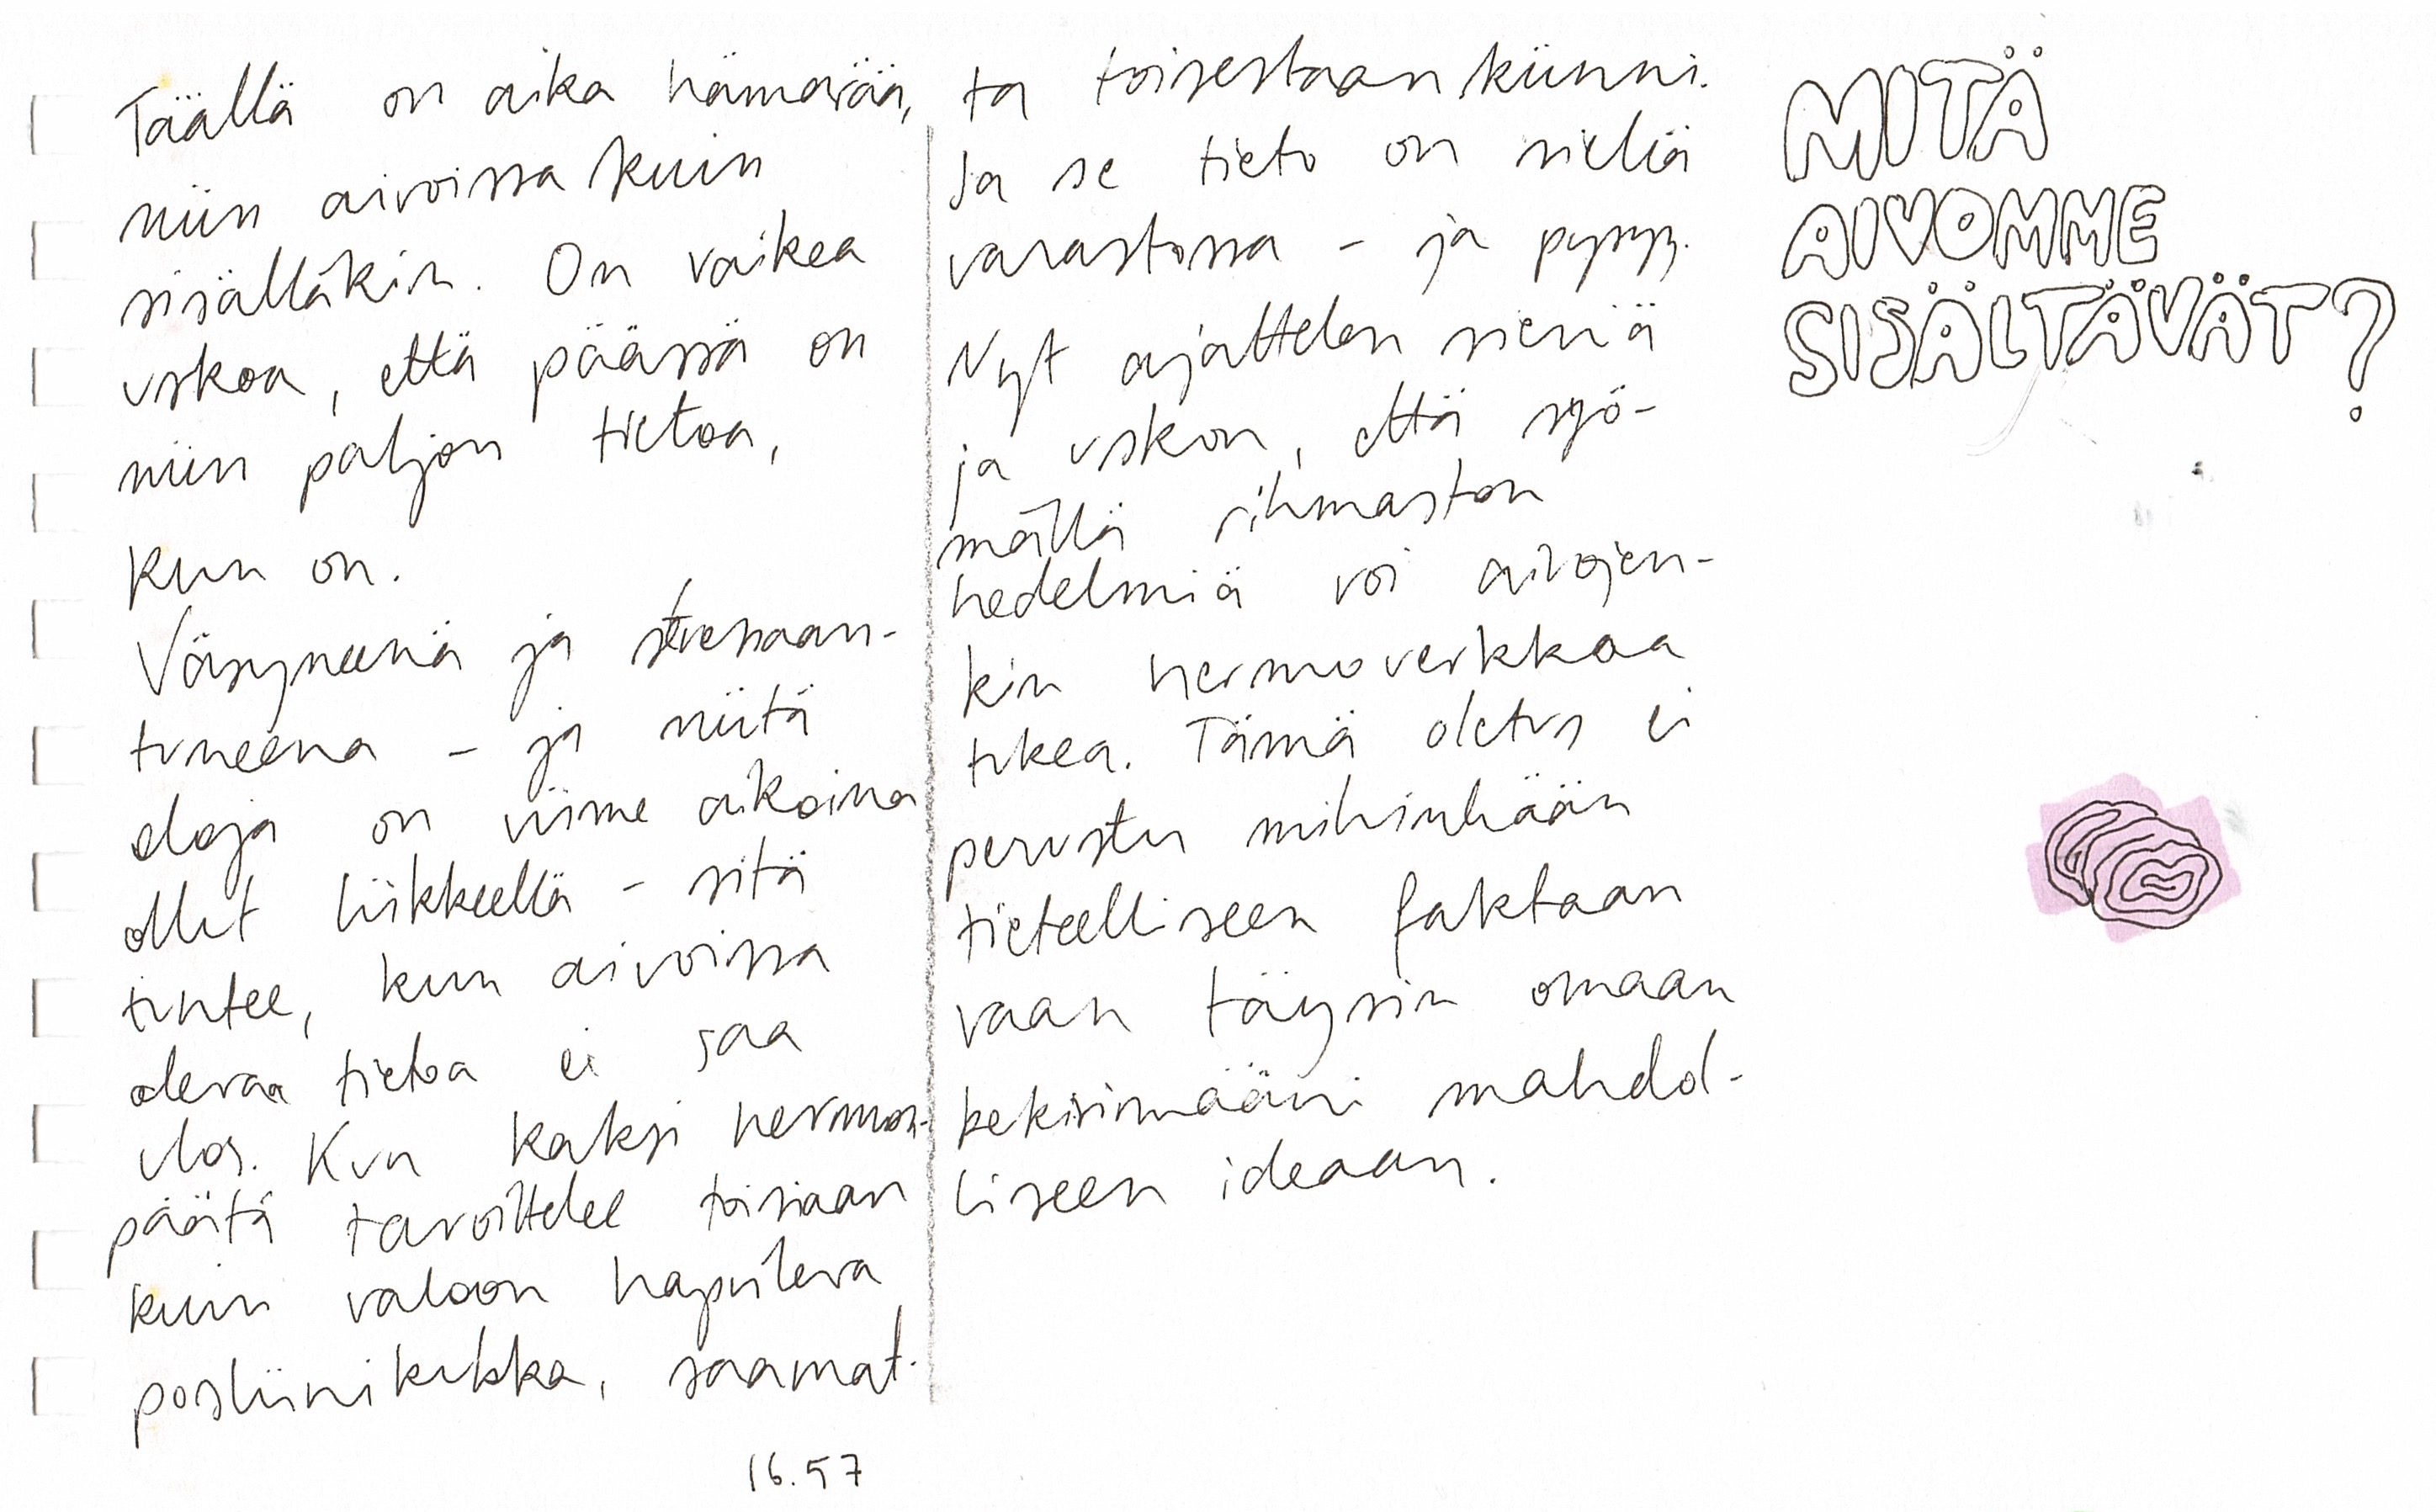 Täällä on aika hämärää,
niin aivoissa kuin
sisälläkin. On vaikea
uskoa, että päässä on
niin paljon tietoa,
kun on.
Väsyneenä ja stressaan-
tuneena – ja niitä
oloja on viime aikoina
ollut liikkeellä – sitä
tuntee, kun aivoissa
olevaa tietoa ei saa
ulos. Kun kaksi hermon-
päätä tavoittelee toisiaan
kuin valoon hapuileva
posliinikukka, saamat-
16.57
ta toisestaan kiinni.
Ja se tieto on siellä
varastossa – ja pysyy.
Nyt ajattelen sieniä
ja uskon, että syö-
mällä rihmaston
hedelmiä voi aivojen-
kin hermoverkkoa
tukea. Tämä oletus ei
perustu mihinkään
tieteelliseen faktaan
vaan täysin omaan
keksimääni mahdol-
liseen ideaan.
MITÄ
AIVOMME
SISÄLTÄVÄT?